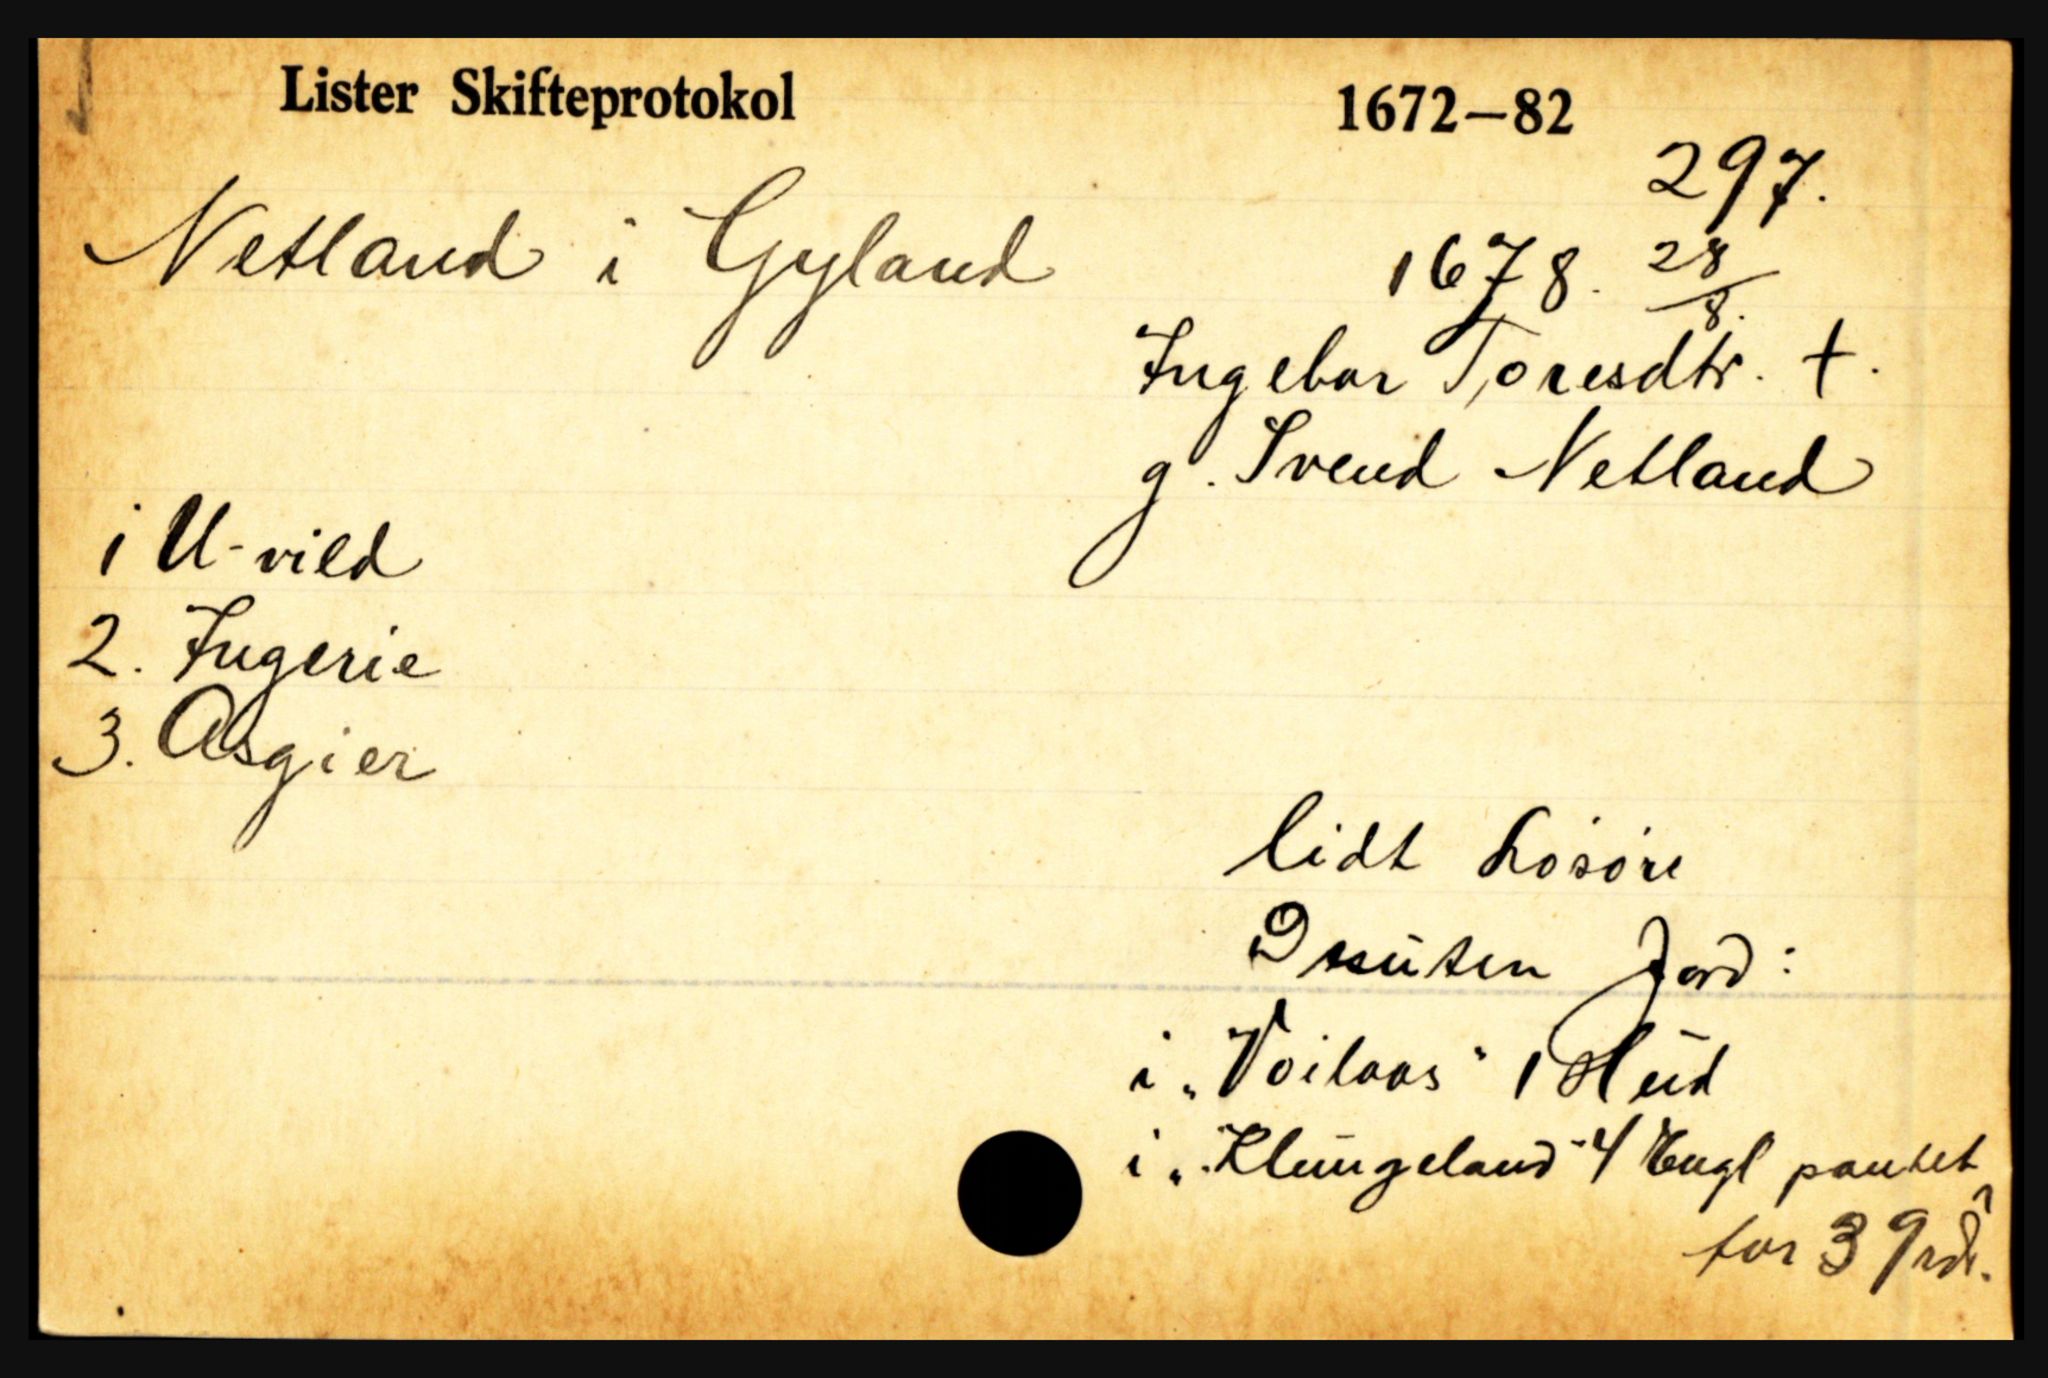 Lister Skifteprotokol 1672–82
297.
Netland i Gyland 1678. 28/8.
Ingebor Toresdtr. †.
g. Svend Netland
1 U-vild
2. Ingerie
3. Asgier
lidt Løsøre
Jord:
i „Voilaas" 1 Hud
i „Klungeland" 4 Engl pantet
for 39 rd.